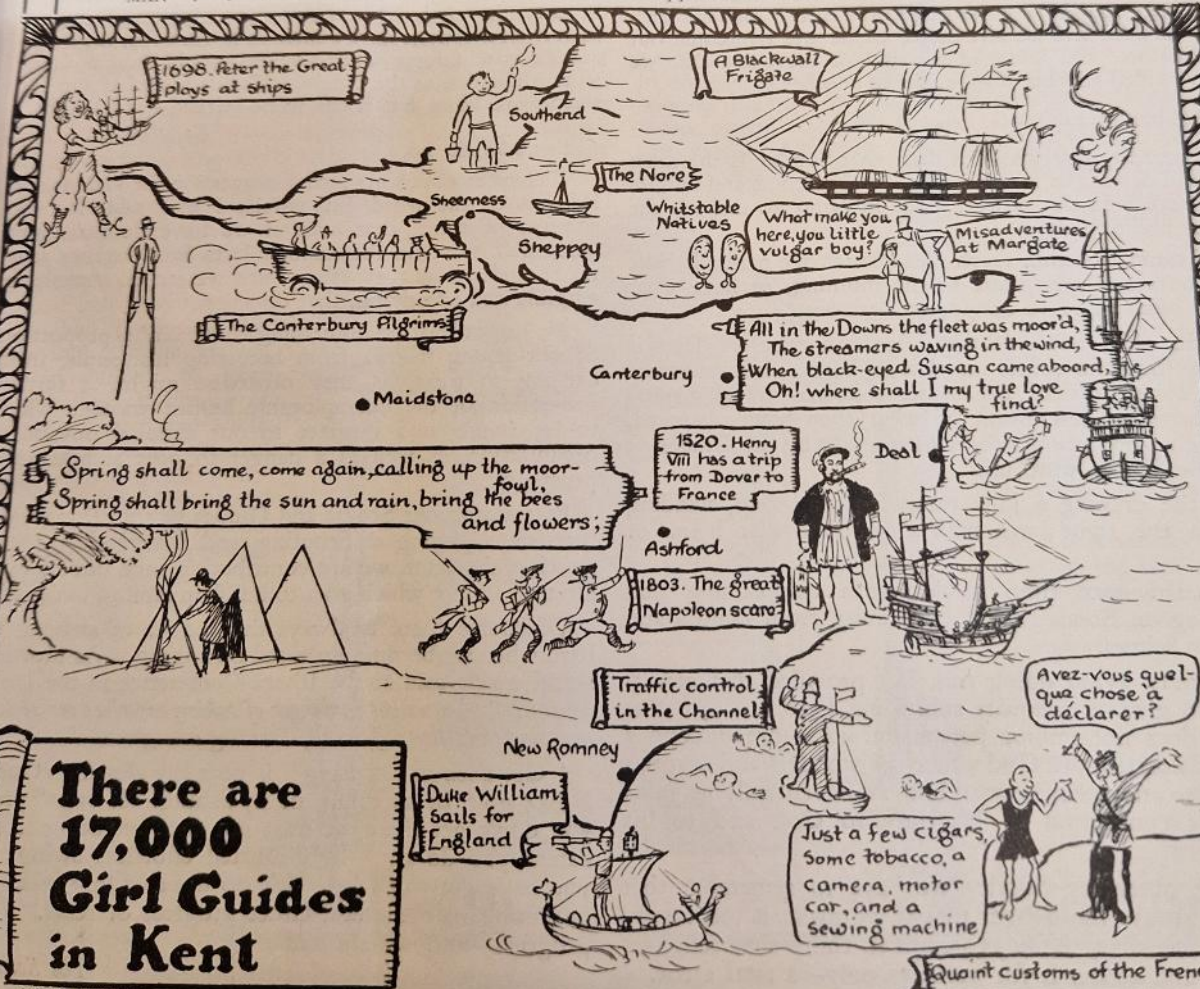 1698. Peter the Great
plays at ships
A Blackwall
Frigate
Southend
The Nore
Sheerness
Sheppey
Whitstable
Natives
What make you
here, you little
vulgar boy?
Misadventures
at Margate
The Canterbury Pilgrims
All in the Downs the fleet was moor'd,
The streamers waving in the wind,
When black-eyed Susan came aboard,
Oh! where shall I my true love
find?
Canterbury
Maidstone
Spring shall come, come again, calling up the moor-
fowl,
Spring shall bring the sun and rain, bring the bees
and flowers;
1520. Henry
VIII has a trip
from Dover to
France
Deal
Ashford
1803. The great
Napoleon scare
Traffic control
in the Channel
Avez-vous quel-
que chose à
déclarer?
New Romney
Duke William
sails for
England
Just a few cigars,
some tobacco, a
camera, motor
car, and a
sewing machine
There are
17,000
Girl Guides
in Kent
Quaint customs of the